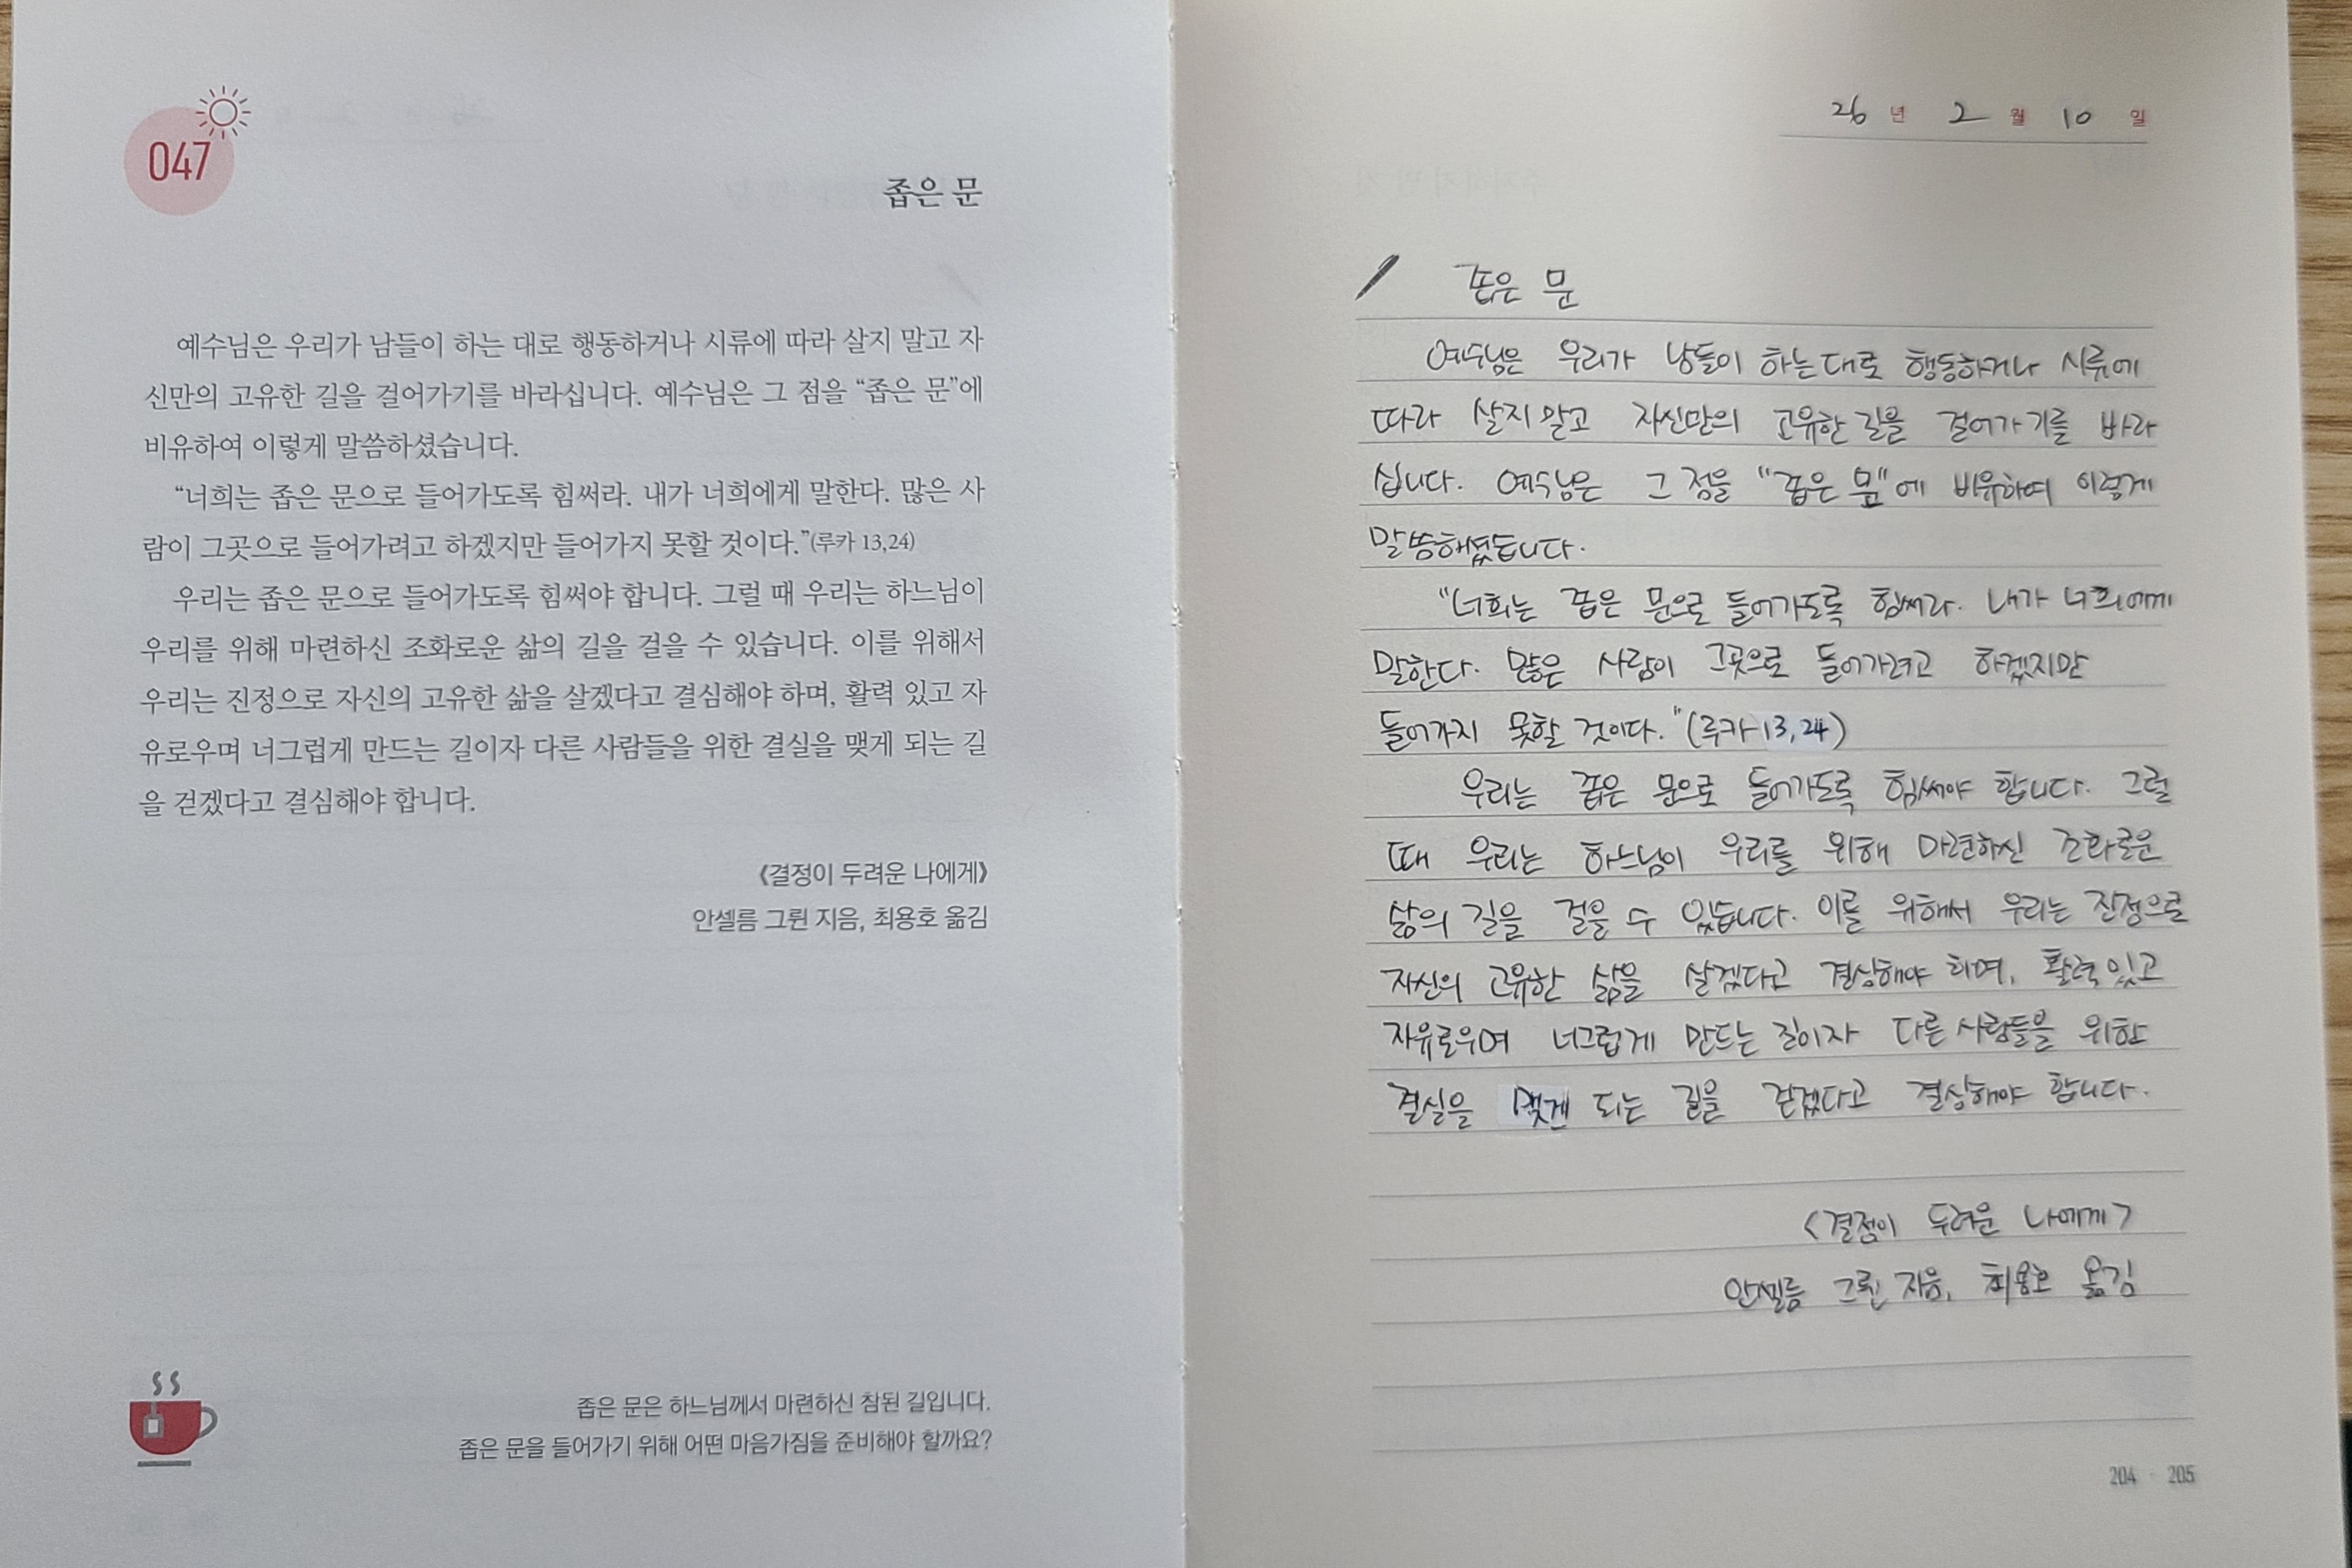 047
좁은 문
예수님은 우리가 남들이 하는 대로 행동하거나 시류에 따라 살지 말고 자
신만의 고유한 길을 걸어가기를 바라십니다. 예수님은 그 점을 “좁은 문”에
비유하여 이렇게 말씀하셨습니다.
“너희는 좁은 문으로 들어가도록 힘써라. 내가 너희에게 말한다. 많은 사
람이 그곳으로 들어가려고 하겠지만 들어가지 못할 것이다.”(루카 13,24)
우리는 좁은 문으로 들어가도록 힘써야 합니다. 그럴 때 우리는 하느님이
우리를 위해 마련하신 조화로운 삶의 길을 걸을 수 있습니다. 이를 위해서
우리는 진정으로 자신의 고유한 삶을 살겠다고 결심해야 하며, 활력 있고 자
유로우며 너그럽게 만드는 길이자 다른 사람들을 위한 결실을 맺게 되는 길
을 걷겠다고 결심해야 합니다.
《결정이 두려운 나에게》
안셀름 그륀 지음, 최용호 옮김
좁은 문은 하느님께서 마련하신 참된 길입니다.
좁은 문을 들어가기 위해 어떤 마음가짐을 준비해야 할까요?
26 년 2 월 10 일
좁은 문
예수님은 우리가 남들이 하는대로 행동하거나 시류에
따라 살지 말고 자신만의 고유한 길을 걸어가기를 바라
십니다. 예수님은 그 점을 "좁은 문"에 비유하여 이렇게
말씀하셨습니다.
"너희는 좁은 문으로 들어가도록 힘써라. 내가 너희에게
말한다. 많은 사람이 그곳으로 들어가려고 하겠지만
들어가지 못할 것이다."(루카 13,24)
우리는 좁은 문으로 들어가도록 힘써야 합니다. 그럴
때 우리는 하느님이 우리를 위해 마련하신 조화로운
삶의 길을 걸을 수 있습니다. 이를 위해서 우리는 진정으로
자신의 고유한 삶을 살겠다고 결심해야 하며, 활력 있고
자유로우며 너그럽게 만드는 길이자 다른 사람들을 위한
결실을 맺게 되는 길을 걷겠다고 결심해야 합니다.
<결정이 두려운 나에게>
안셀름 그륀 지음, 최용호 옮김
204 · 205